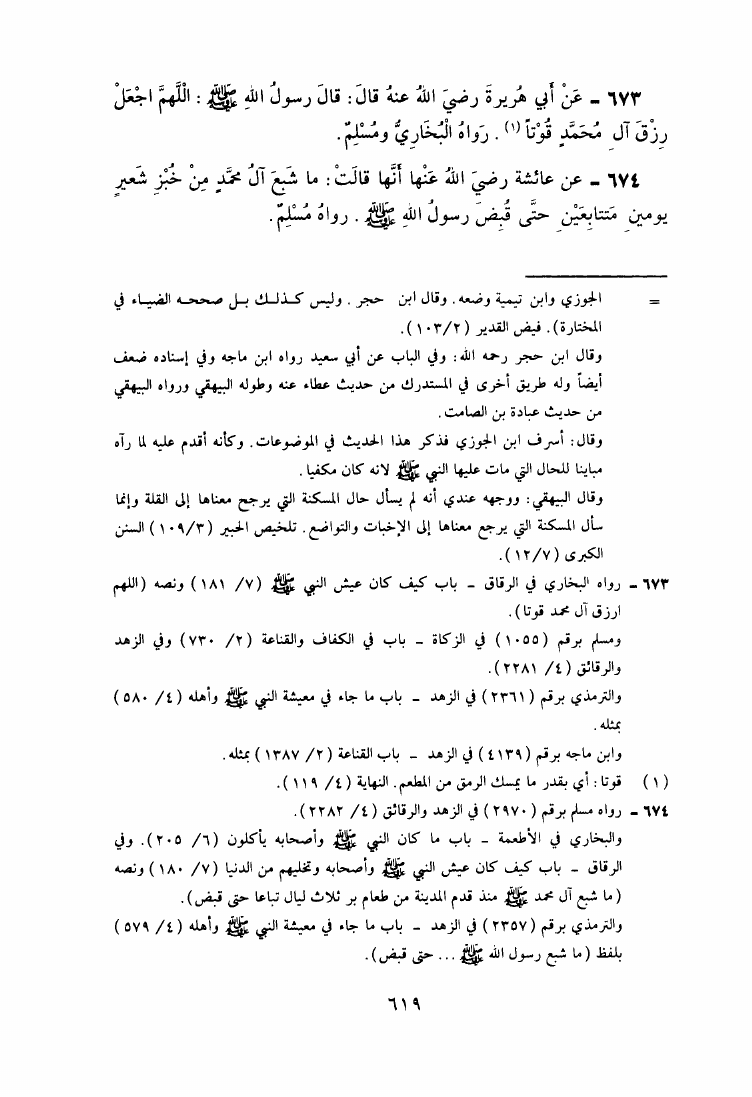 ٦٧٣ - عَنْ أَبي هُريرةَ رضيَ اللهُ عنهُ قالَ: قالَ رسولُ اللهِ ﷺ: اللَّهمَّ اجْعَلْ
رِزْقَ آلِ مُحَمَّدٍ قُوْتاً (١). رَوَاهُ الْبُخَارِيُّ ومُسْلِمٌ.
٦٧٤ - عن عائشة رضيَ اللهُ عَنْها أَنَّها قالَتْ: ما شَبِعَ آلُ محمَّدٍ مِنْ خُبْزِ شَعيرٍ
يومينِ مَتتابِعَيْنِ حتَّى قُبِضَ رسولُ اللهِ ﷺ. رواهُ مُسْلِمٌ.
= الجوزي وابن تيمية وضعه. وقال ابن حجر. وليس كذلك بل صححه الضياء في
المختارة). فيض القدير (١٠٣/٢).
وقال ابن حجر رحمه الله: وفي الباب عن أبي سعيد رواه ابن ماجه وفي إسناده ضعف
أيضاً وله طريق أخرى في المستدرك من حديث عطاء عنه وطوله البيهقي ورواه البيهقي
من حديث عبادة بن الصامت.
وقال: أسرف ابن الجوزي فذكر هذا الحديث في الموضوعات. وكأنه أقدم عليه لما رآه
مباينا للحال التي مات عليها النبي ﷺ لانه كان مكفيا.
وقال البيهقي: ووجهه عندي أنه لم يسأل حال المسكنة التي يرجح معناها إلى القلة وإنما
سأل المسكنة التي يرجع معناها إلى الإخبات والتواضع. تلخيص الحبير (١٠٩/٣) السنن
الكبرى (١٢/٧).
٦٧٣ - رواه البخاري في الرقاق - باب كيف كان عيش النبي ﷺ (٧/ ١٨١) ونصه (اللهم
ارزق آل محمد قوتا).
ومسلم برقم (١٠٥٥) في الزكاة - باب في الكفاف والقناعة (٢/ ٧٣٠) وفي الزهد
والرقائق (٤/ ٢٢٨١).
والترمذي برقم (٢٣٦١) في الزهد - باب ما جاء في معيشة النبي ﷺ وأهله (٤/ ٥٨٠)
بمثله.
وابن ماجه برقم (٤١٣٩) في الزهد - باب القناعة (٢/ ١٣٨٧) بمثله.
(١) قوتا: أي بقدر ما يمسك الرمق من المطعم. النهاية (٤/ ١١٩).
٦٧٤ - رواه مسلم برقم (٢٩٧٠) في الزهد والرقائق (٤/ ٢٢٨٢).
والبخاري في الأطعمة - باب ما كان النبي ﷺ وأصحابه يأكلون (٦/ ٢٠٥). وفي
الرقاق - باب كيف كان عيش النبي ﷺ وأصحابه وتخليهم من الدنيا (٧/ ١٨٠) ونصه
(ما شبع آل محمد ﷺ منذ قدم المدينة من طعام بر ثلاث ليال تباعا حتى قبض).
والترمذي برقم (٢٣٥٧) في الزهد - باب ما جاء في معيشة النبي ﷺ وأهله (٤/ ٥٧٩)
بلفظ (ما شبع رسول الله ﷺ ... حتى قبض).
٦١٩